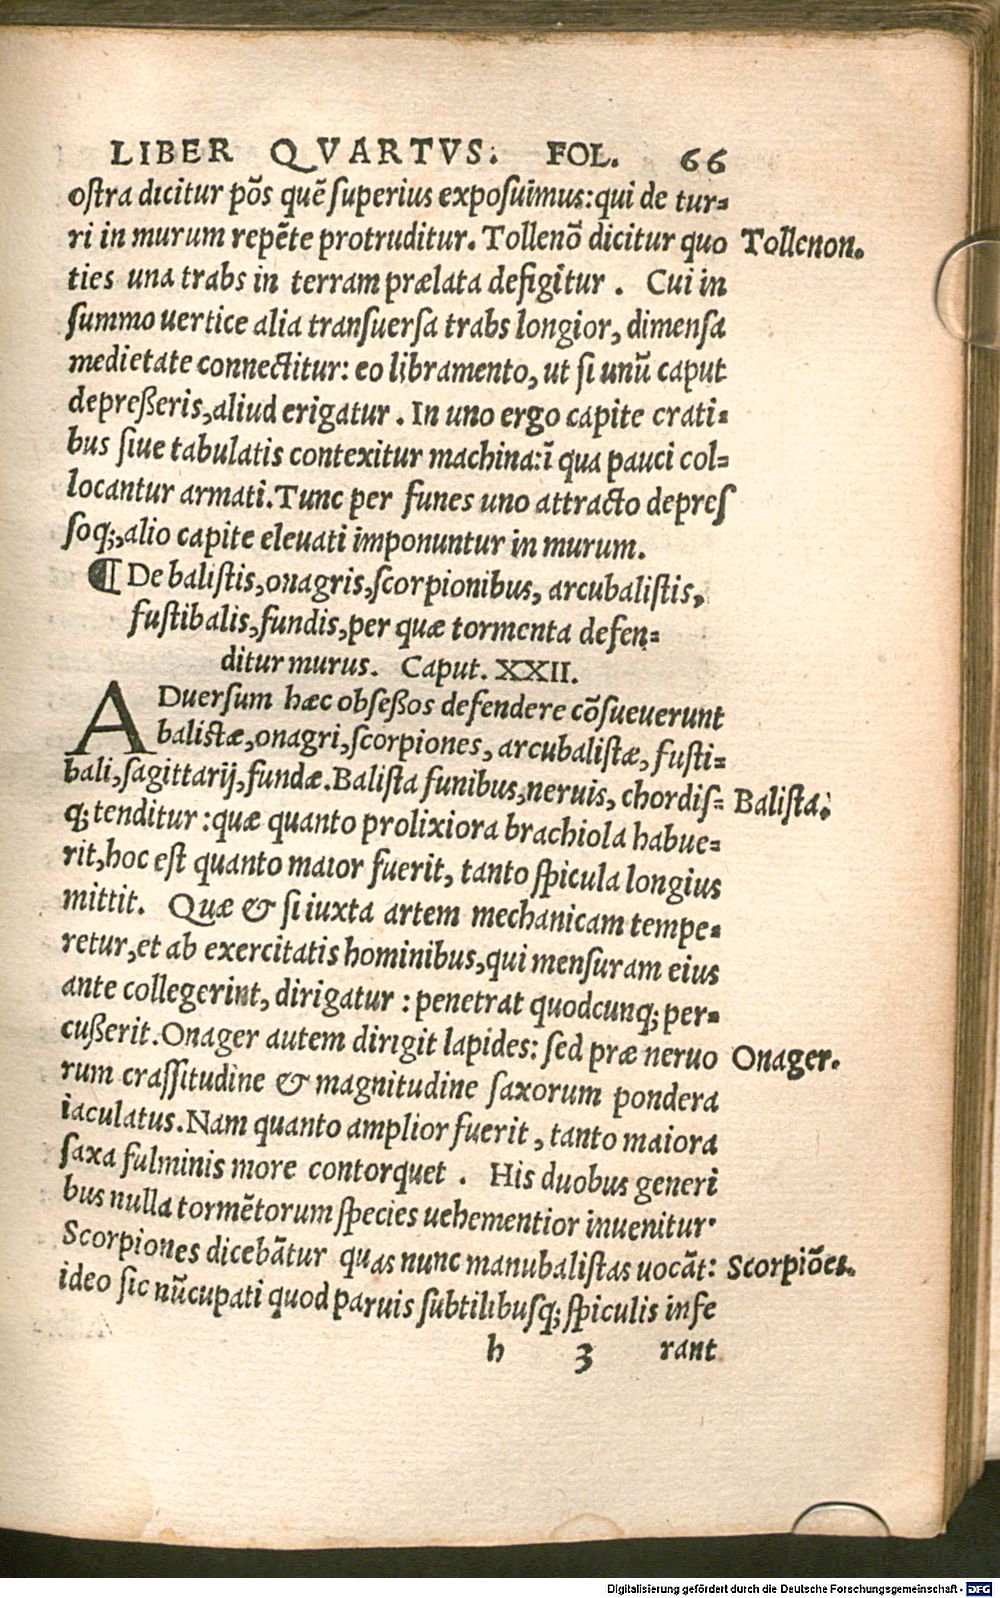 LIBER QVARTVS. FOL. 66
oſtra dicitur põs quẽ ſuperius expoſuimus: qui de tur⸗
ri in murum repẽte protruditur. Tollenõ dicitur quo Tollenon.
ties una trabs in terram prælata defigitur . Cui in
ſummo uertice alia tranſuerſa trabs longior, dimenſa
medietate connectitur: eo libramento, ut ſi unũ caput
depreßeris, aliud erigatur . In uno ergo capite crati⸗
bus ſiue tabulatis contexitur machina: ĩ qua pauci col⸗
locantur armati. Tunc per funes uno attracto depreſ
ſoq;, alio capite eleuati imponuntur in murum.
¶ De baliſtis, onagris, ſcorpionibus, arcubaliſtis,
fuſtibalis, fundis, per quæ tormenta defen⸗
ditur murus. Caput. XXII.
ADuerſum hæc obſeßos defendere cõſueuerunt
baliſtæ, onagri, ſcorpiones, arcubaliſtæ, fuſti⸗
bali, ſagittarij, fundæ. Baliſta funibus, neruis, chordiſ⸗ Baliſta.
q; tenditur: quæ quanto prolixiora brachiola habue⸗
rit, hoc eſt quanto maior fuerit, tanto ſpicula longius
mittit. Quæ & ſi iuxta artem mechanicam tempe⸗
retur, et ab exercitatis hominibus, qui menſuram eius
ante collegerint, dirigatur : penetrat quodcunq; per⸗
cußerit. Onager autem dirigit lapides: ſed præ neruo Onager.
rum craſſitudine & magnitudine ſaxorum pondera
iaculatus. Nam quanto amplior fuerit, tanto maiora
ſaxa fulminis more contorquet . His duobus generi
bus nulla tormẽtorum ſpecies uehementior inuenitur.
Scorpiones dicebãtur quas nunc manubaliſtas uocãt: Scorpiões.
ideo ſic nũcupati quod paruis ſubtilibuſq; ſpiculis infe
h 3 rant
Digitalisierung gefördert durch die Deutsche Forschungsgemeinschaft - DFG